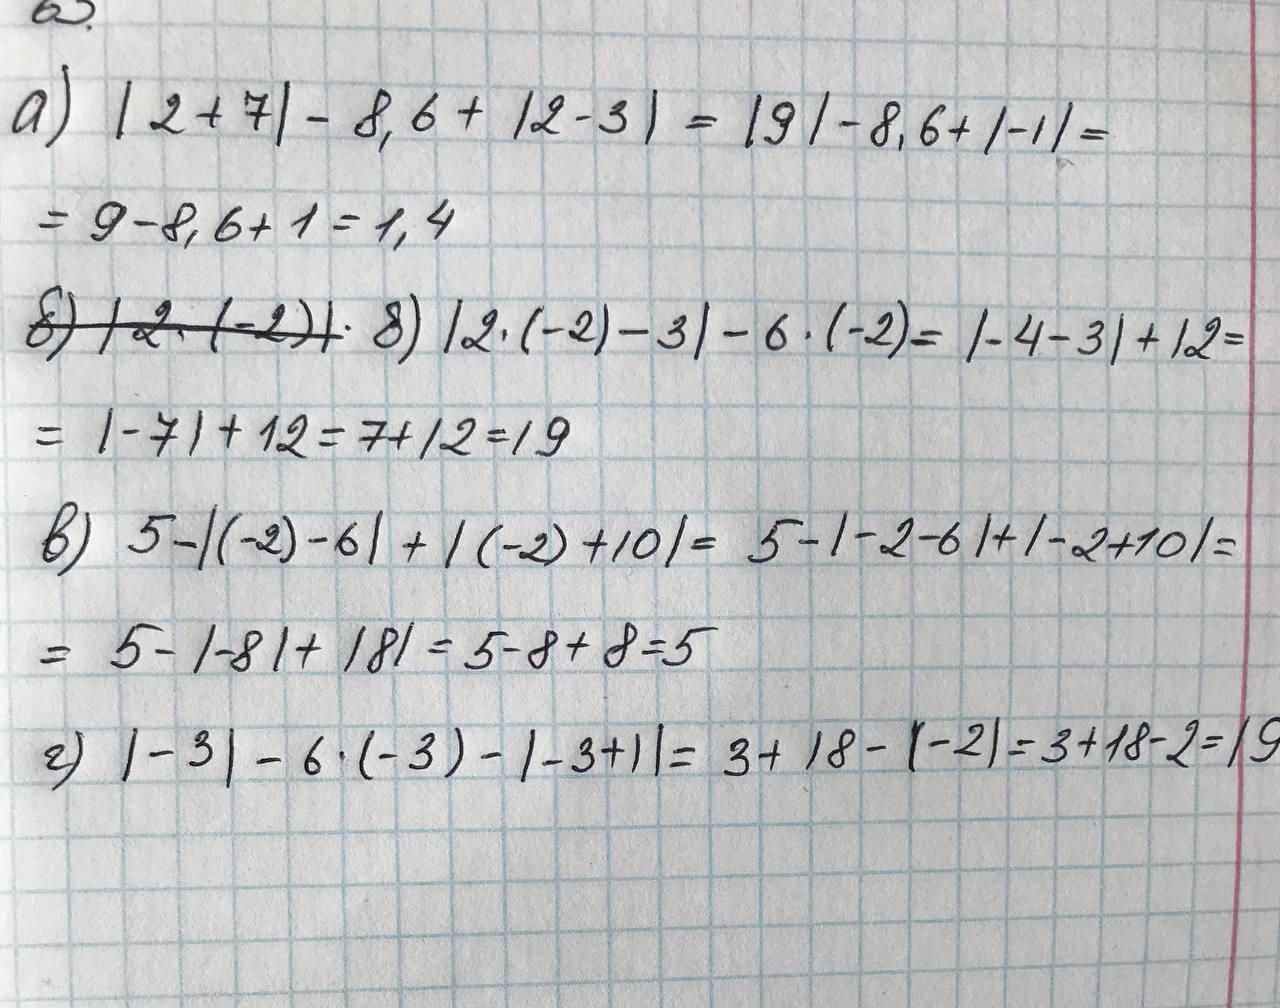 а) |2+7| - 8,6 + |2-3| = |9| - 8,6 + |-1| =
= 9 - 8,6 + 1 = 1,4
б) |2·(-2)|· б) |2·(-2) - 3| - 6·(-2) = |-4-3| + 12 =
= |-7| + 12 = 7 + 12 = 19
в) 5 - |(-2) - 6| + |(-2) + 10| = 5 - |-2-6| + |-2+10| =
= 5 - |-8| + |8| = 5 - 8 + 8 = 5
г) |-3| - 6·(-3) - |-3+1| = 3 + 18 - |-2| = 3 + 18 - 2 = 19